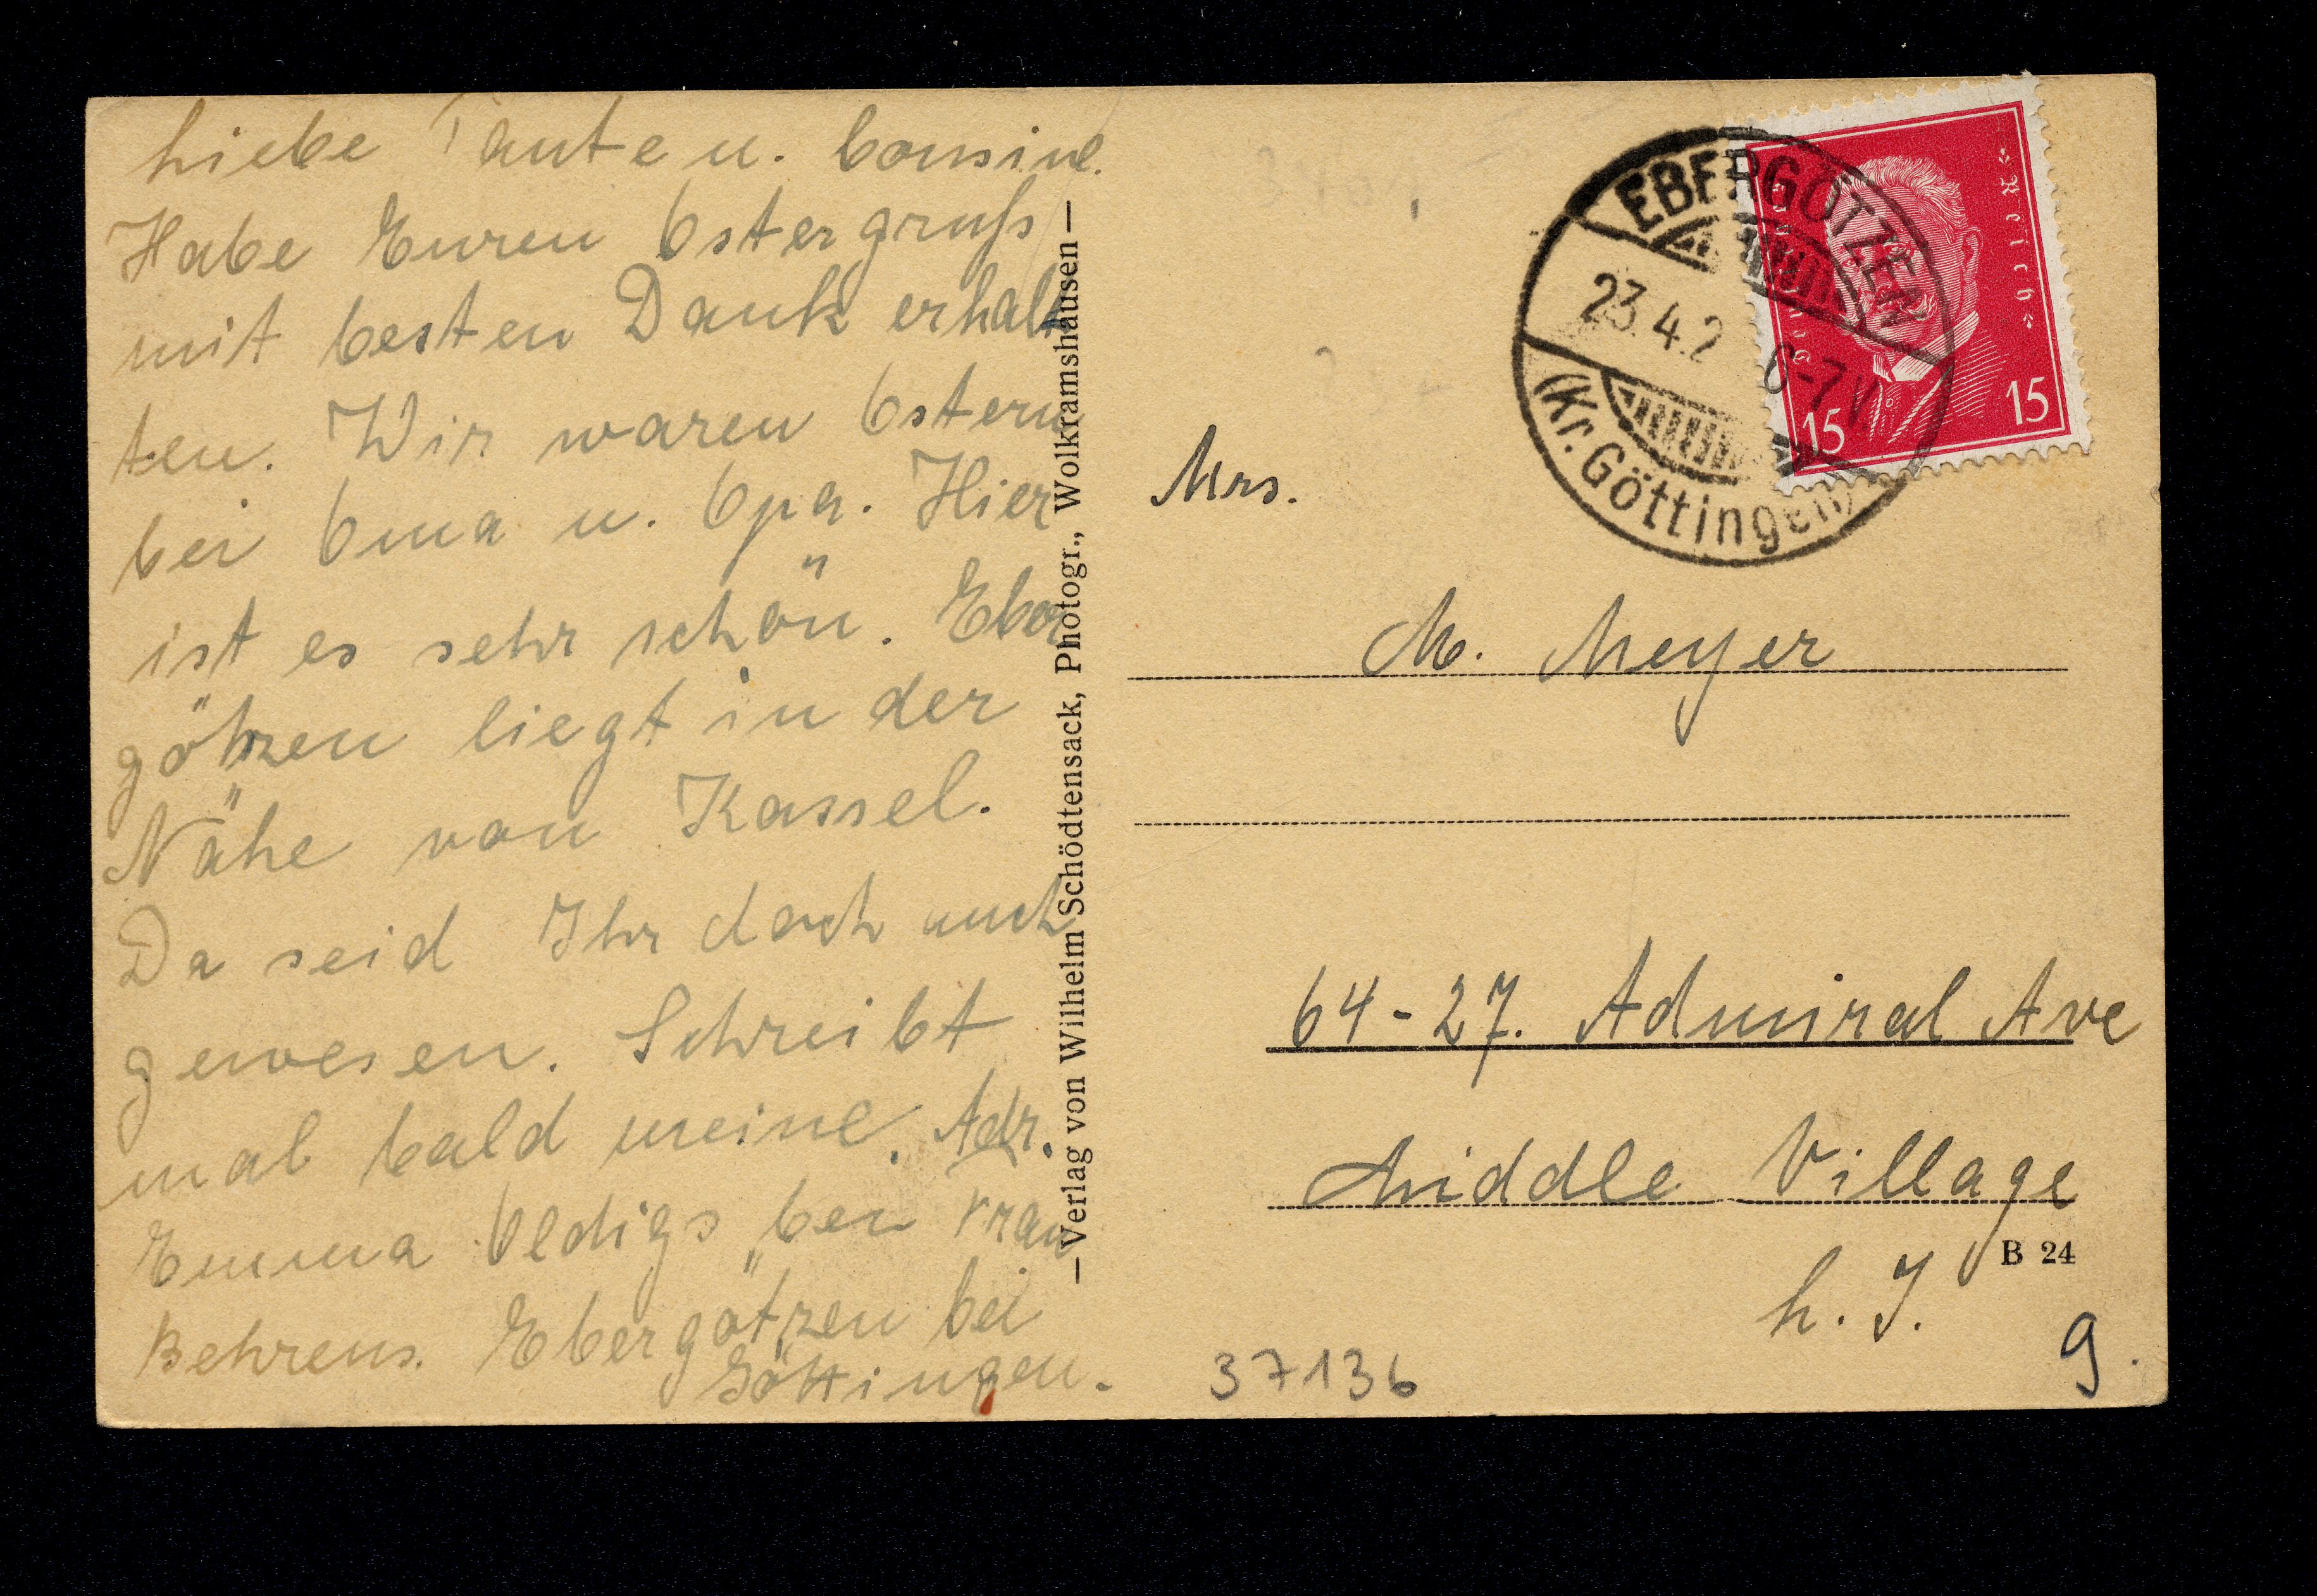 Liebe Tante u. Cousine.
Habe Euren Ostergruß
mit besten Dank erhal
ten. Wir waren Ostern
bei Oma u. Opa. Hier
ist es sehr schön. Eber
götzen liegt in der
Nähe von Kassel.
Da seid Ihr doch auch
gewesen. Schreibt
mal bald meine Adr.
Emma bei Frau
Behrens. Ebergötzen bei
Göttingen.
— Verlag von Wilhelm Schödtensack, Photogr., Wolkramshausen —
EBERGÖTZEN
23.4.2 6-7 V
(Kr. Göttingen)
Deutsches Reich
15 15
Mrs.
M. Meyer
64-27. Admiral Ave
Middle Village
L. I.
B 24
9.
37136